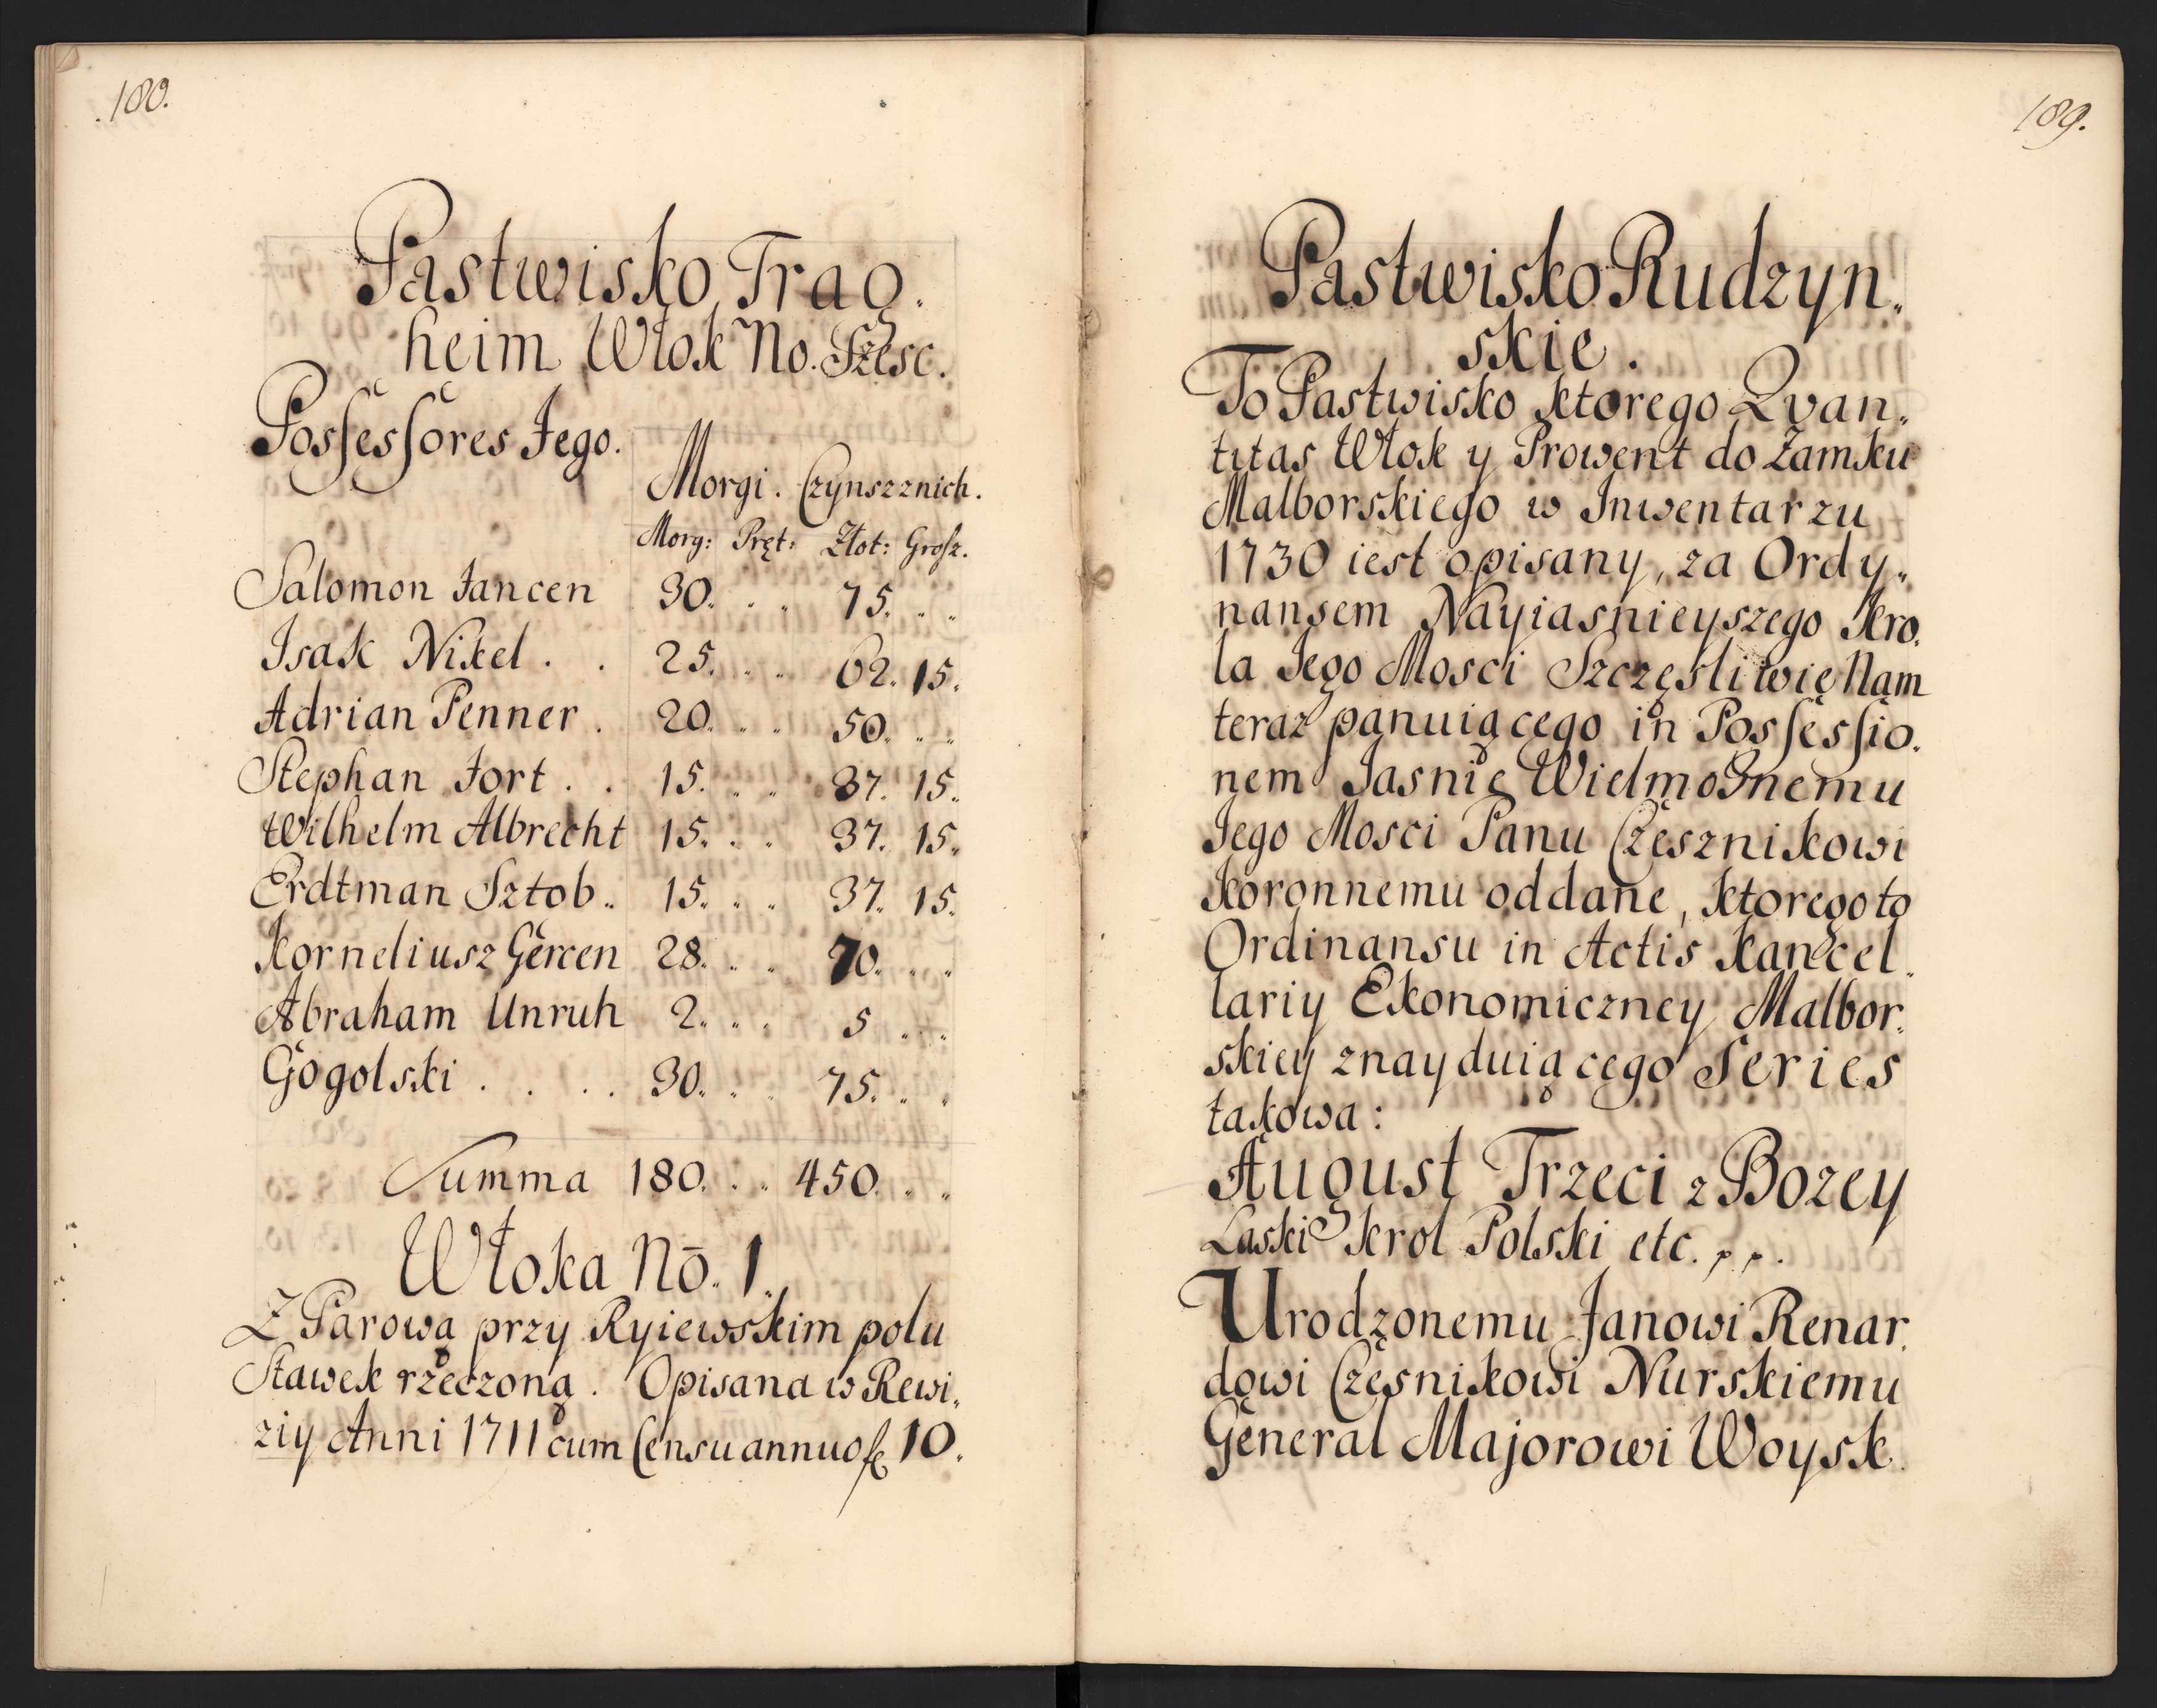 180.
Pastwisko Trag.
heim Włok No. Szesc.
Possessores Jego.
Morgi. Czynszznich.
Morg: Pręt: Złot: Grosz.
Salomon Jancen 30. 75.
Isak Nikel . . 25. 62. 15.
Adrian Penner . 20. 50.
Stephan Jort . . 15. 37. 15.
Wilhelm Albrecht 15. 37. 15.
Erdtman Sztob.. 15. 37. 15.
Korneliusz Gercen 28. 70.
Abraham Unruh 2. 5
Gogolski . . . . 30. 75.
Summa 180. 450.
Włoka No. 1.
Z Parową przy Ryiewskim polu
Stawek rzeczoną. Opisana w Rewi.
ziy Anni 1711 cum Censu annuo fl 10.
189.
Pastwisko Rudzyn.
skie.
To Pastwisko ktorego Qvan.
titas Włok y Prowent do Zamku
Malborskiego w Inwentarzu
1730 iest opisany, za Ordy.
nansem Nayiasnieyszego Kro.
la Jego Mosci Szczęsliwię Nam
teraz panuiącego in Possessio.
nem Jasnie Wielmożnemu
Jego Mosci Panu Czesznikowi
Koronnemu oddane, ktorego to
Ordinansu in Actis Kancel.
lariy Ekonomiczney Malbor.
skiey znayduiącego Series
takowa:
August Trzeci z Bozey
Laski Krol Polski etc. p. p.
Urodzonemu Janowi Renar.
dowi Czesnikowi Nurskiemu
General Majorowi Woysk